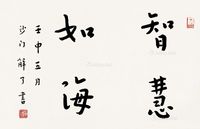 智慧
如海
壬申五月
沙门解了书